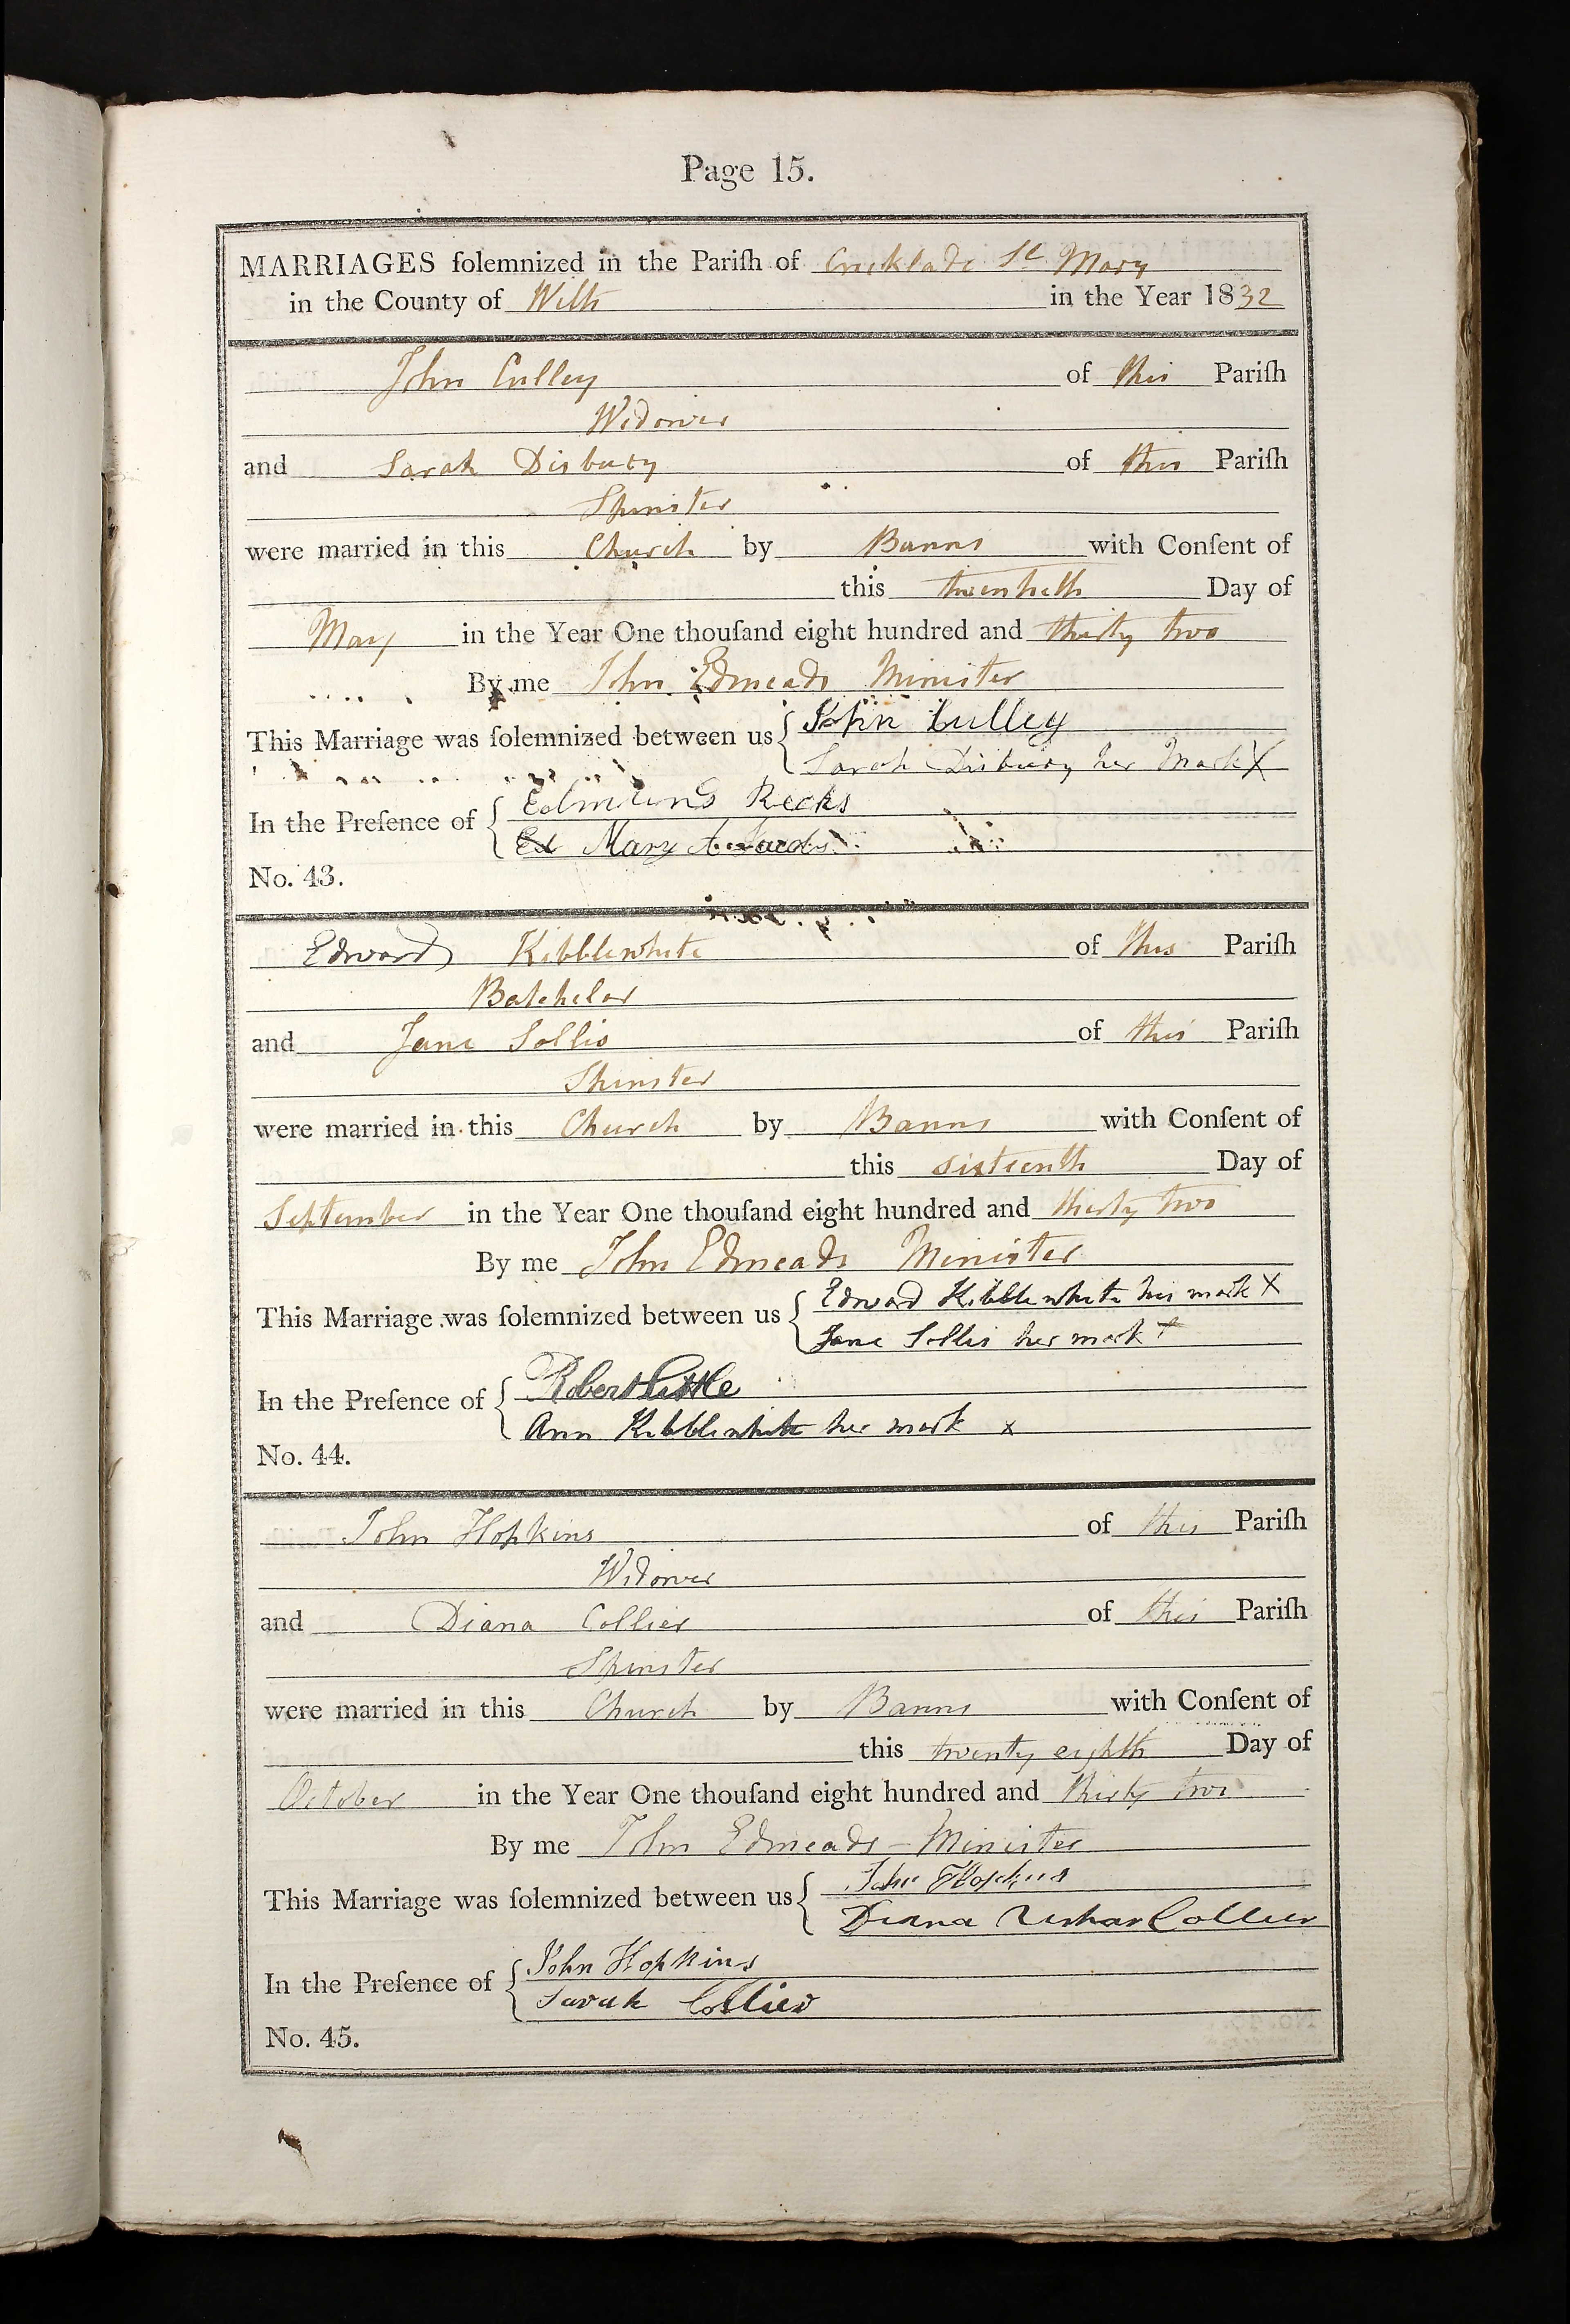 Page 15.
MARRIAGES ſolemnized in the Pariſh of Cricklade St Mary
in the County of Wilts in the Year 1832
John Culley of this Pariſh
Widower
and Sarah Disbury of this Pariſh
Spinster
were married in this Church by Banns with Conſent of
this twentieth Day of
May in the Year One thouſand eight hundred and thirty two
By me John Edmeads Minister
This Marriage was ſolemnized between us John Culley
Sarah Disbury her Mark X
In the Preſence of Edmund Recks
Mary
No. 43.
Edward Kibblewhite of this Pariſh
Batchelor
and Jane Sollis of this Pariſh
Spinster
were married in this Church by Banns with Conſent of
this sixteenth Day of
September in the Year One thouſand eight hundred and thirty two
By me John Edmeads Minister
This Marriage was ſolemnized between us Edward Kibblewhite his mark X
Jane Sollis her mark X
In the Preſence of Robert Little
Ann Kibblewhite her mark x
No. 44.
John Hopkins of this Pariſh
Widower
and Diana Collier of this Pariſh
Spinster
were married in this Church by Banns with Conſent of
this twenty eighth Day of
October in the Year One thouſand eight hundred and thirty two
By me John Edmeads - Minister
This Marriage was ſolemnized between us John Hopkins
Diana Collier
In the Preſence of John Hopkins
Sarah Collier
No. 45.